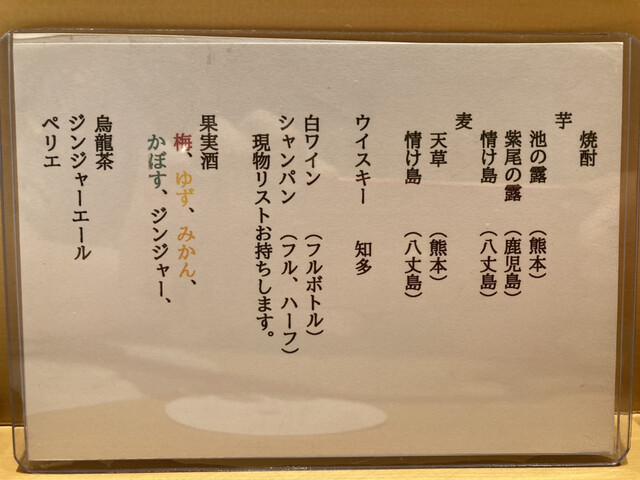 焼酎
芋
池の露 （熊本）
紫尾の露 （鹿児島）
情け島 （八丈島）
麦
天草 （熊本）
情け島 （八丈島）
ウイスキー 知多
白ワイン （フルボトル）
シャンパン （フル、ハーフ）
現物リストお持ちします。
果実酒
梅、ゆず、みかん、
かぼす、ジンジャー、
烏龍茶
ジンジャーエール
ペリエ